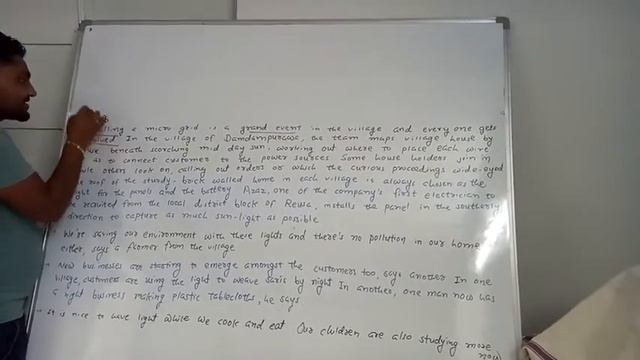 lling a micro grid is a grand event in the village and every one gets
lved In the village of Damdampurawa, the team maps village house by
beneath scorching mid day sun, working out where to place each wire
as to connect customer to the power sources Some house holders join in
others look on, calling out orders or watch the curious proceedings wide-eyed
roof of the sturdy-brock walled home in each village is always chosen as the
ght for the panels and the battery Araz, one of the company's first electrician to
recruited from the local district block of Reusa, installs the panel in the southerly
direction to capture as much sun-light as possible
We're saving our environment with these lights and there's no pollution in our home
either, says a farmer from the village
New businesses are starting to emerge amongst the customers too, says another In one
village, customers are using the light to weave saris by night In another, one man now has
a night business making plastic tablecloths, he says
It is nice to have light while we cook and eat Our children are also studying more
now